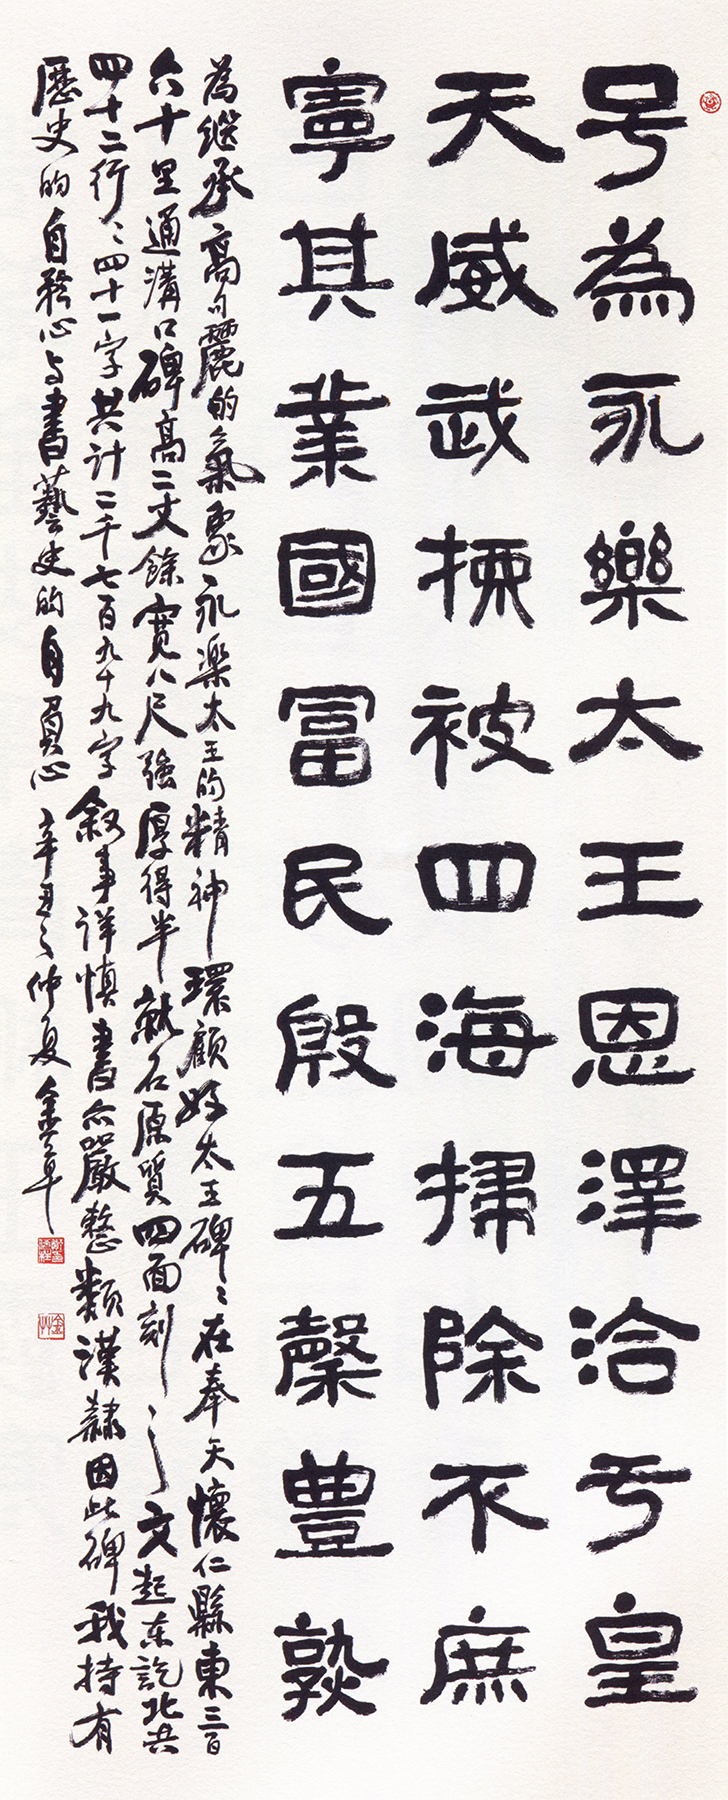 号為永樂太王恩澤洽于皇
天威武㨖被四海掃除不庶
寧其業國富民殷五穀豐熟
為繼承高句麗的氣象永樂太王的精神環顧好太王碑碑在奉天懷仁縣東三百
六十里通溝口碑高二丈餘寬八尺強厚得半就石原質四面刻之文起東訖北共
四十二行行四十一字共計二千七百九十九字敘事詳慎書亦嚴整類漢隸因此碑我持有
歷史的自矜心与書藝史的自負心 辛丑之仲夏